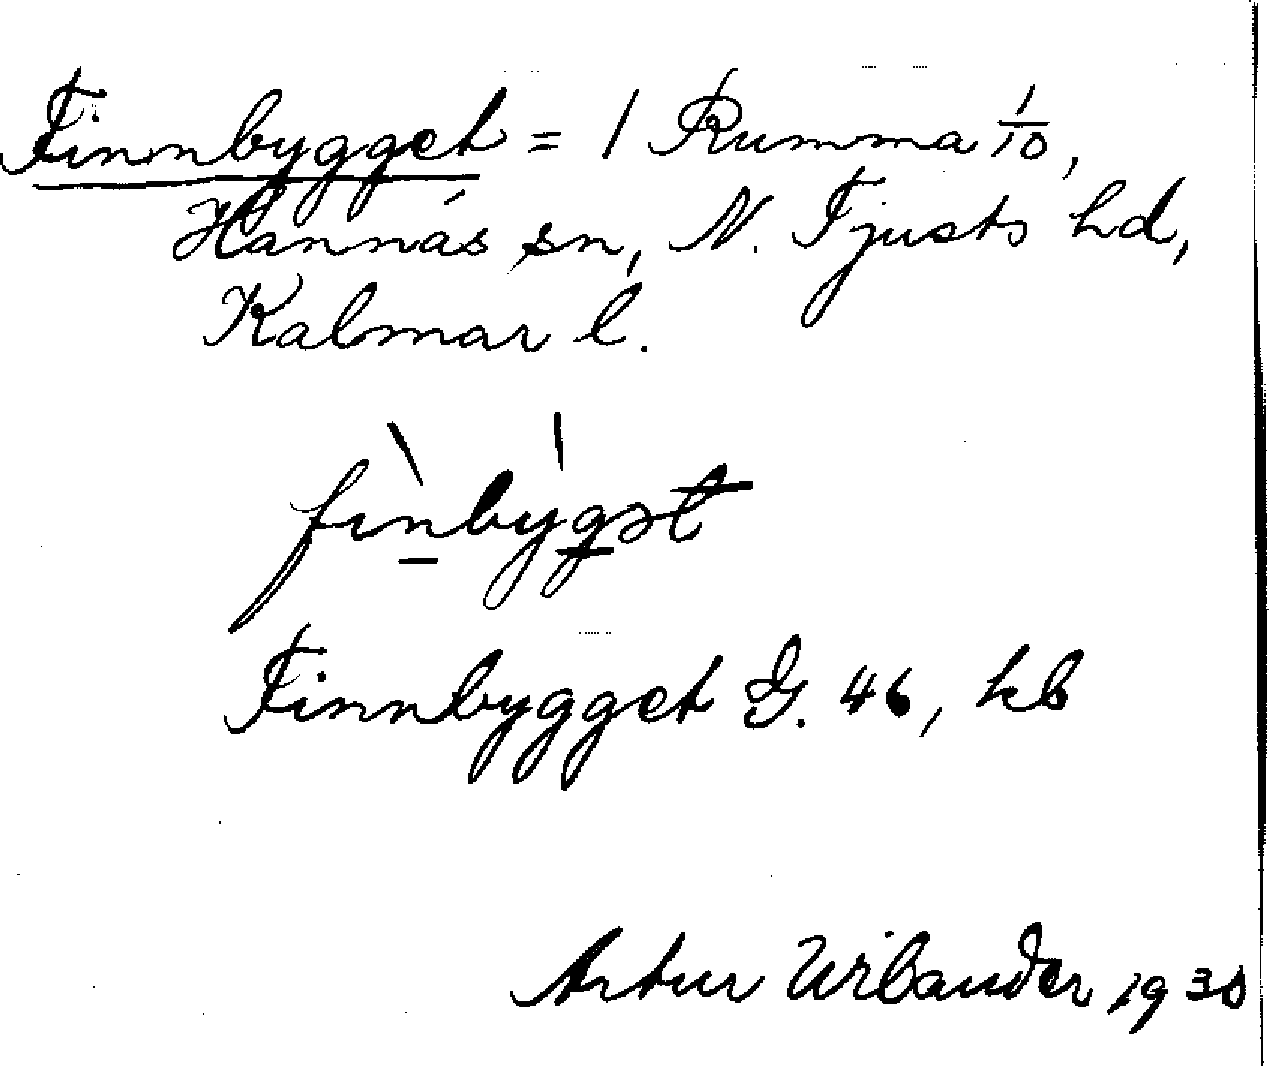 Finnbygget = / Rumma 1/10,
Hannäs sn, N. Tjusts hd,
Kalmar l.
fìnbýgət
Finnbygget G. 46, kb
Artur Urbander 1930